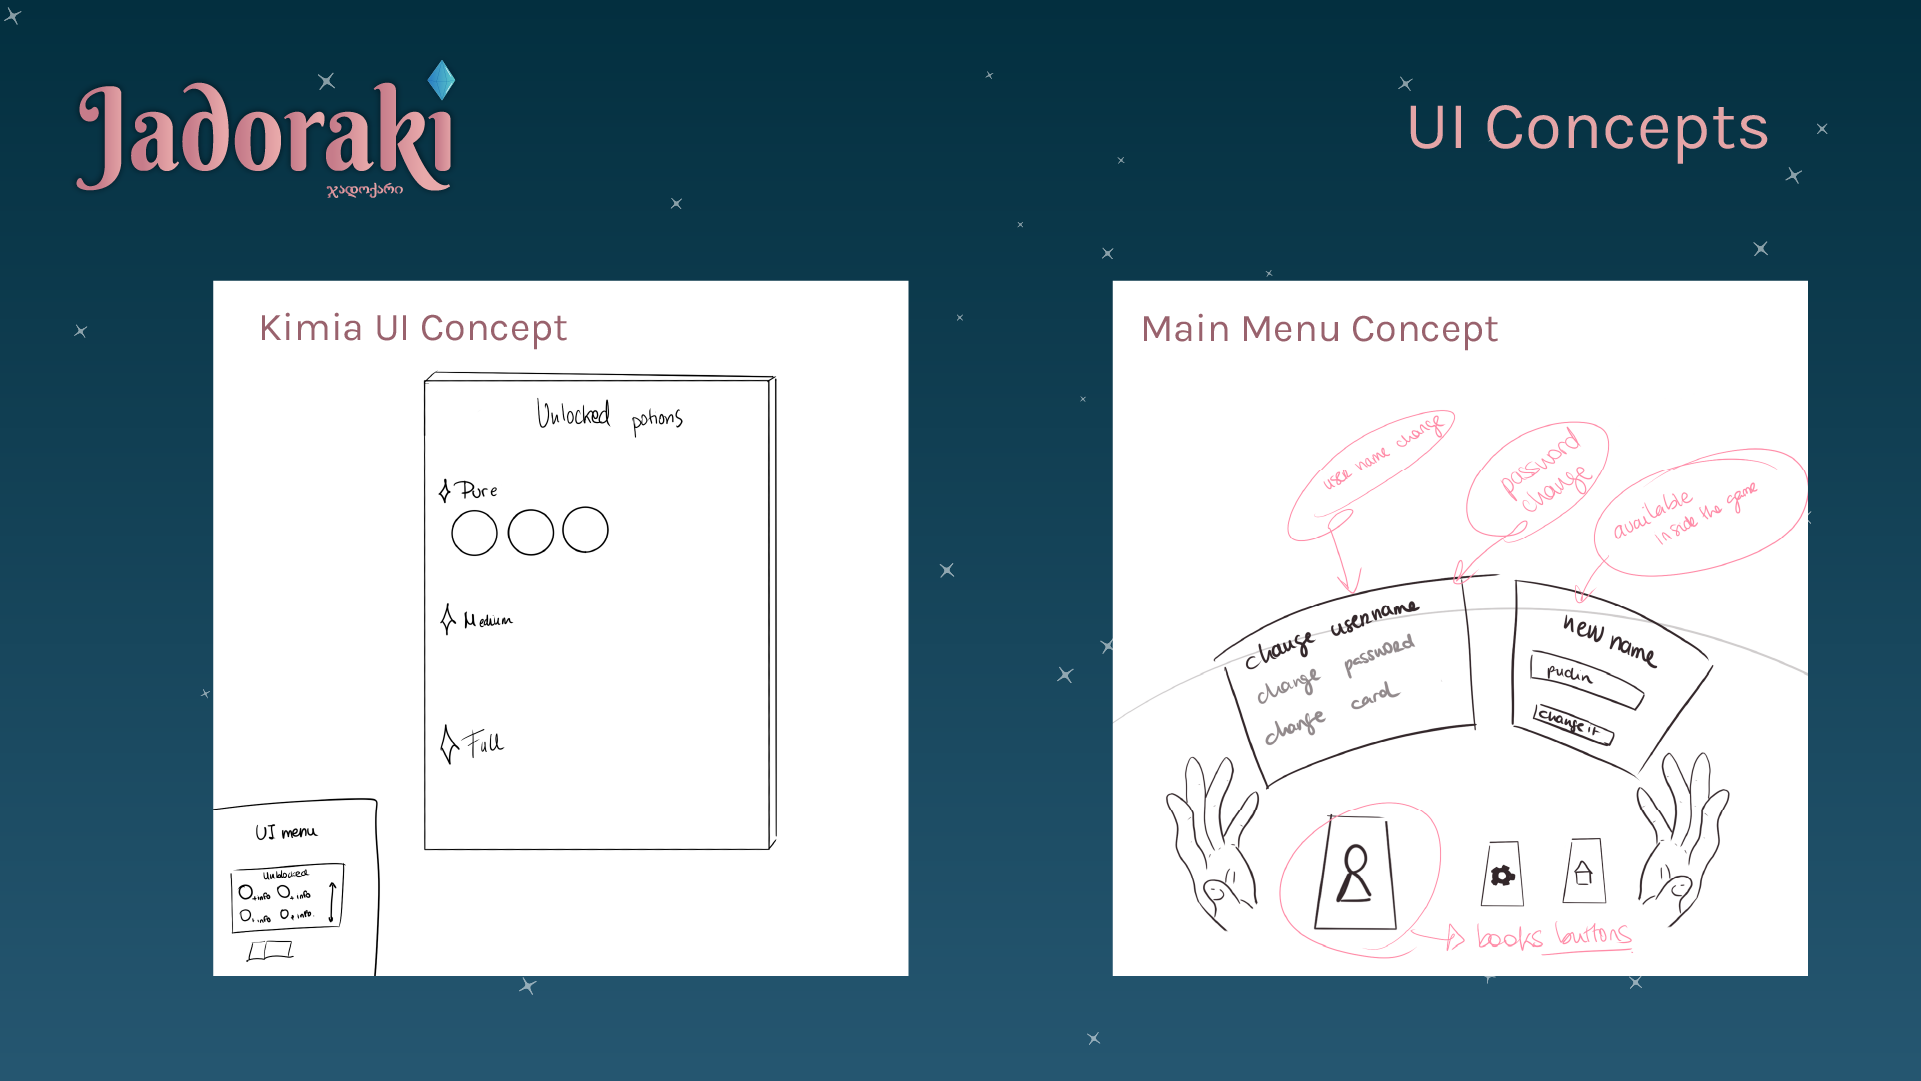 Jadoraki
ჯადოქარი
UI Concepts
Kimia UI Concept
Unlocked potions
Pure
Medium
Full
UI menu
Unblocked
+info +info
+info +info.
Main Menu Concept
user name change
password
change
available
inside the game
change username
change password
change card
new name
pudin
change it
books buttons